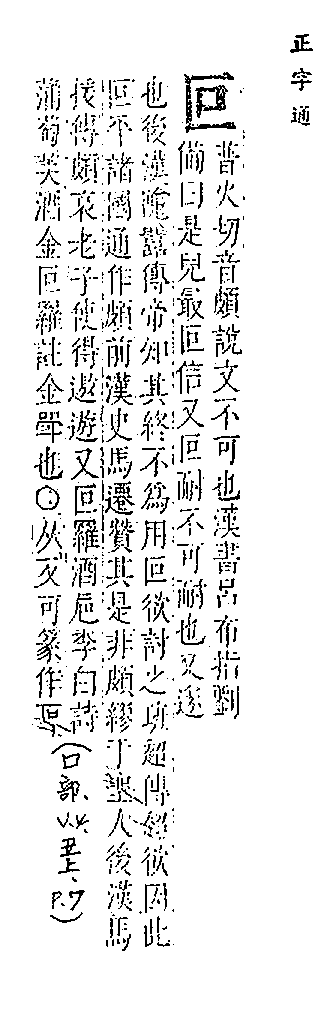 正字通
叵
普火切音頗說文不可也漢書呂布指劉
備曰是兒最叵信又叵耐不可耐也又遂
也後漢隗囂傳帝知其終不為用叵欲討之班超傳超欲因此
叵平諸國通作頗前漢史馬遷贊其是非頗繆于聖人後漢馬
援傳頗哀老子使得遨遊又叵羅酒巵李白詩
蒲萄美酒金叵羅註金斝也○从反可篆作
(口部、V.4、丑上、P.7)